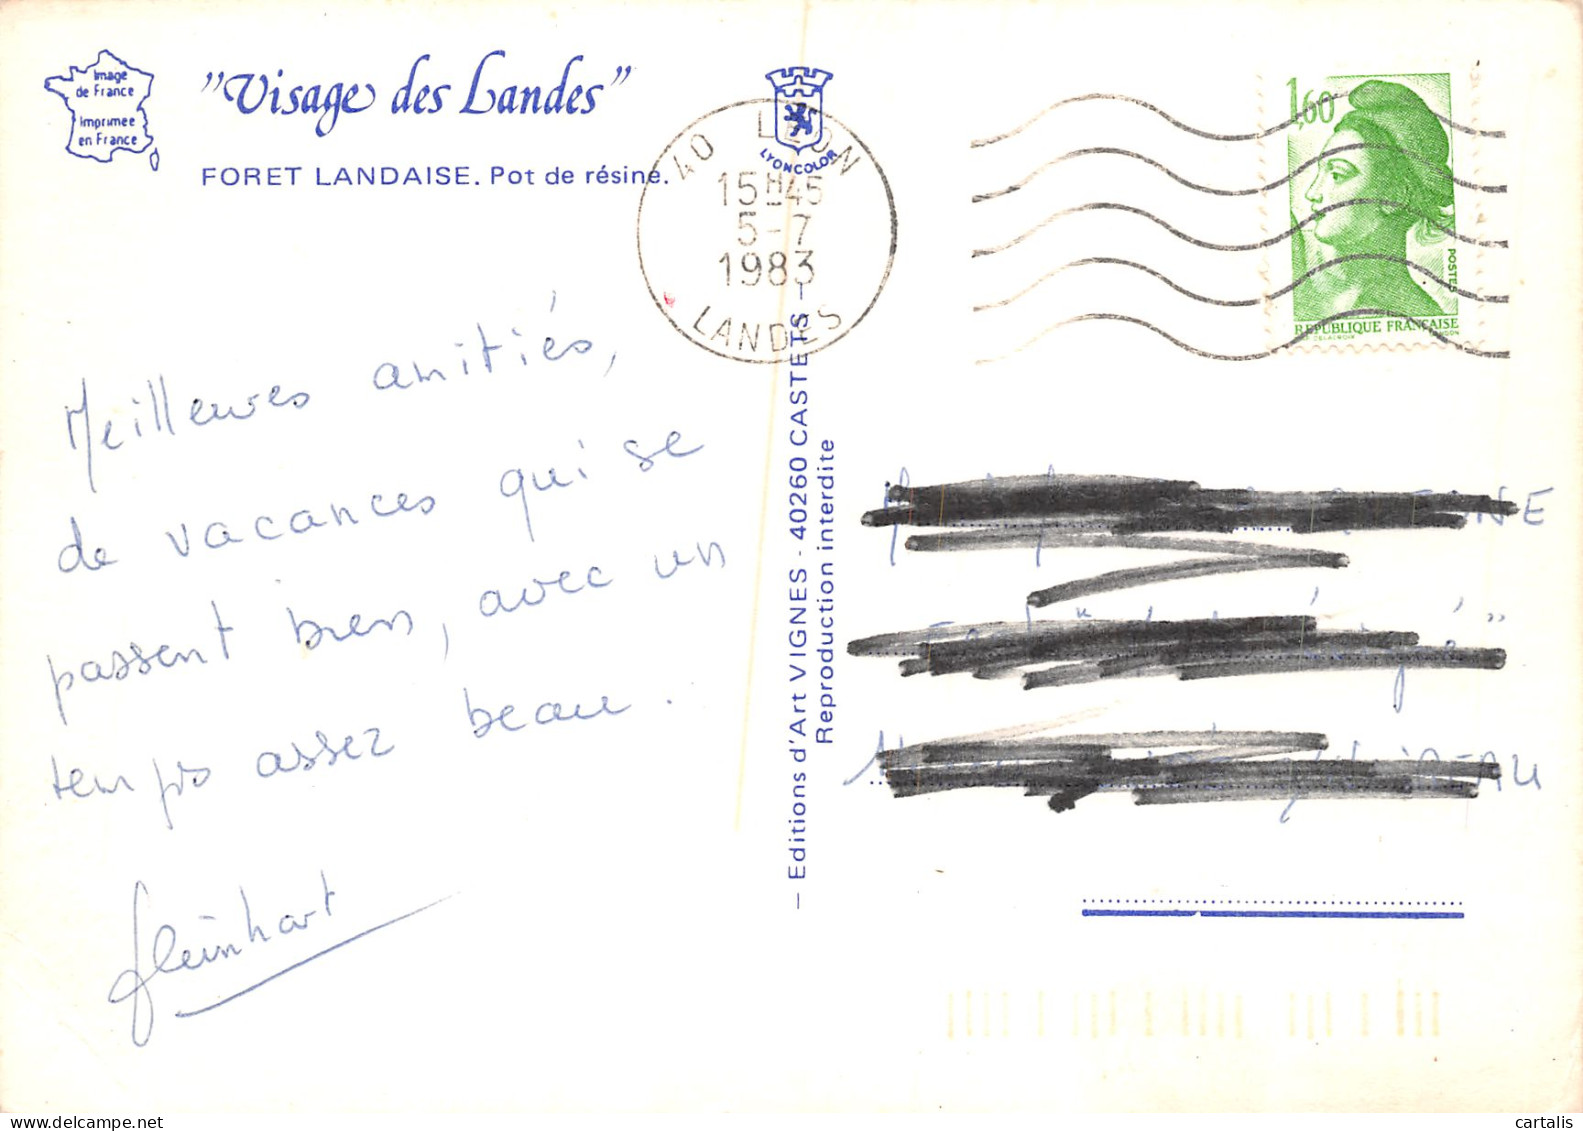 Image
de France
Imprimée
en France
"Visage des Landes"
FORET LANDAISE. Pot de résine.
LYONCOLOR
40 LEON
15H45
5-7
1983
LANDES
1,60
POSTES
REPUBLIQUE FRANÇAISE
Meilleures amitiés,
de vacances qui se
passent bien, avec un
temps assez beau.
— Editions d'Art VIGNES - 40260 CASTETS —
Reproduction interdite